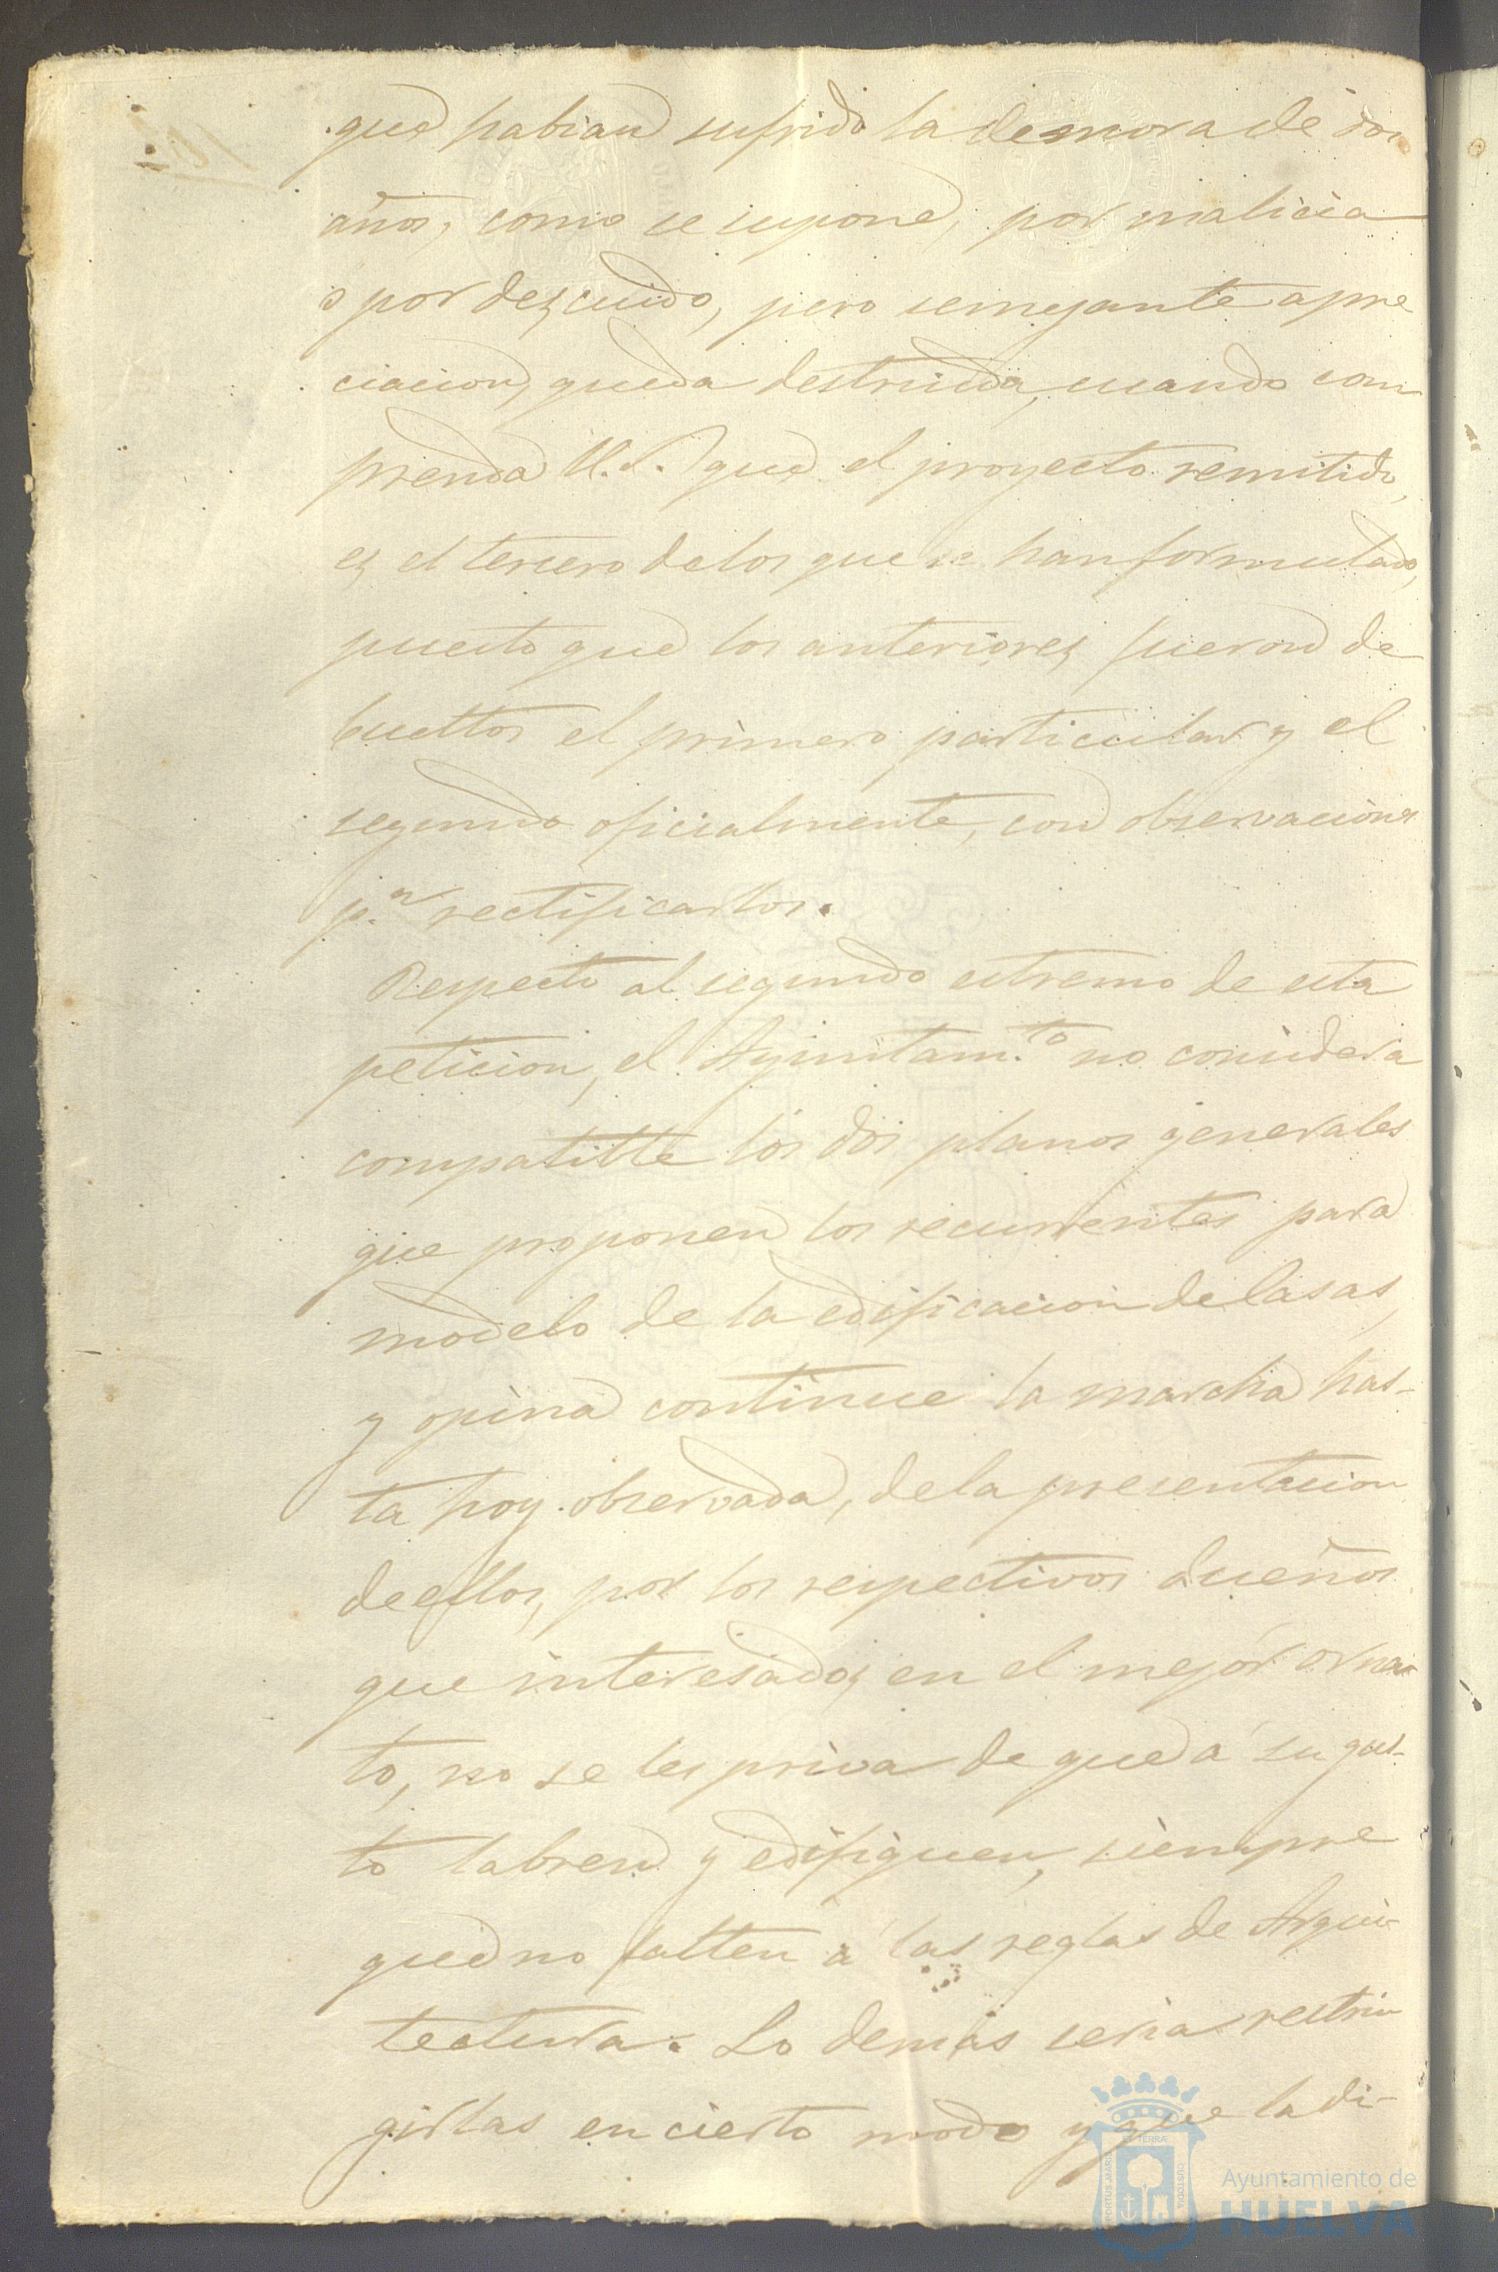 que habian sufrido la demora de dos
años, como se supone, por malicia
o por dezcuido, pero semejante apre
ciacion, queda destruida, cuando com
prenda U.S. que el proyecto remitido,
ez el tercero de los que se han formulado,
puesto que los anteriorez fueron de
bueltos el primero particular y el
segundo oficialmente, con observaciones
p.ª rectificarlos.
Respecto al segundo estremo de esta
peticion, el Ayuntam.to no considera
compatible los dos planos generales
que proponen los recurrentes para
modelo de la edificacion de casas,
y opina continue la marcha has-
ta hoy observada, de la presentacion
de ellos, por los respectivos dueños
que interesadoz en el mejór orna
to, no se les priva de que á su gus-
to labren y edifiquen, siempre
que no falten á las reglas de Arqui-
tectura. Lo demas seria restrin
girlas en cierto modo y que la di-
PORTUS MARIS
ET TERRÆ
CUSTODIA
Ayuntamiento de
HUELVA